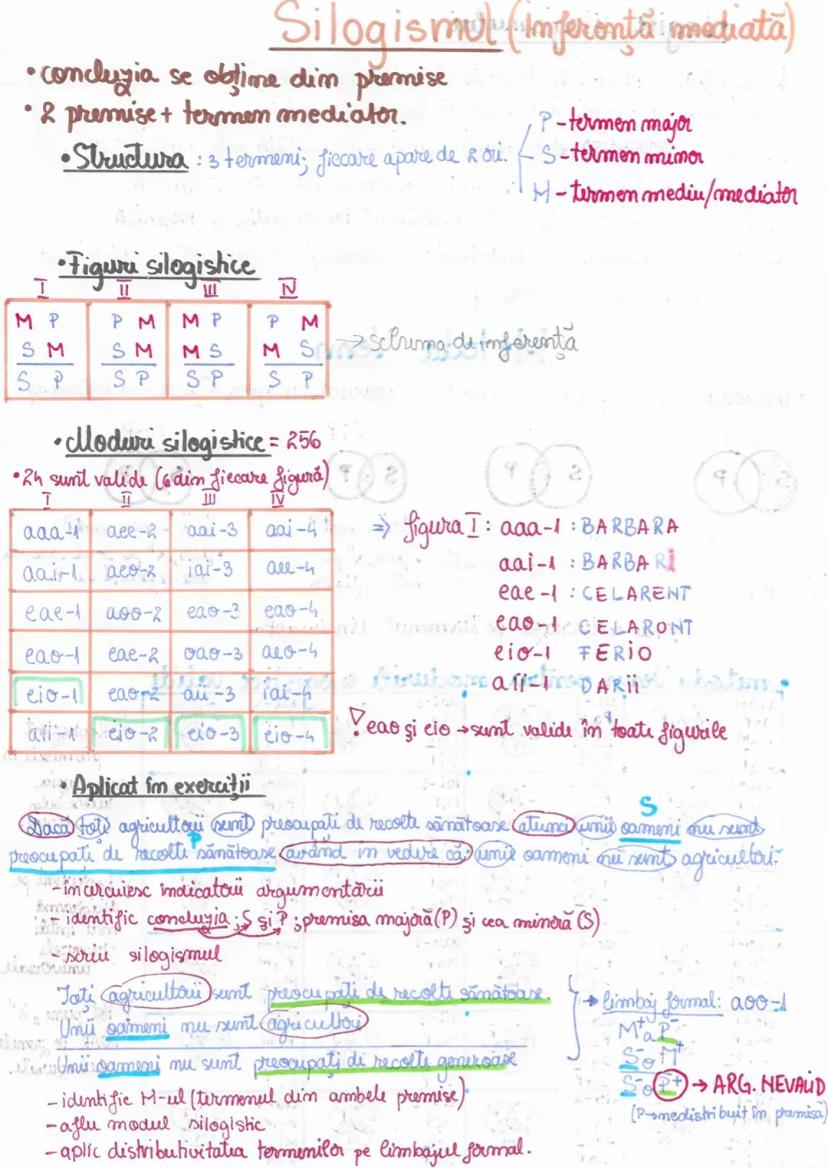 Silogismul (inferență mediată)
• concluzia se obține din premise
• 2 premise + termen mediator.
• Structura : 3 termeni; fiecare apare de 2 ori.
P - termen major
S - termen minor
M - termen mediu/mediator
• Figuri silogistice
I II III IV
M P P M M P P M
S M S M M S M S
S P S P S P S P
→ schema de inferență
• Moduri silogistice = 256
• 24 sunt valide (6 din fiecare figură)
I II III IV
aaa-1 aee-2 aai-3 aai-4
aai-1 aeo-2 iai-3 aee-4
eae-1 aoo-2 eao-3 eao-4
eao-1 eae-2 oao-3 aeo-4
eio-1 eao-2 aii-3 iai-4
aii-1 eio-2 eio-3 eio-4
⇒ figura I: aaa-1 : BARBARA
aai-1 : BARBARi
eae-1 : CELARENT
eao-1 CELARONT
eio-1 FERIO
aii-1 DARii
! eao și eio → sunt valide în toate figurile
• Aplicat în exerciții
S
Dacă toți agricultorii sunt preocupați de recolte sănătoase atunci unii oameni nu sunt
P
preocupați de recolte sănătoase având in vedere că unii oameni nu sunt agricultori.
- încercuiesc indicatorii argumentării
- identific concluzia; S și P; premisa majoră (P) și cea minoră (S)
- scriu silogismul
Toți agricultorii sunt preocupați de recolte sănătoase.
Unii oameni nu sunt agricultori
Unii oameni nu sunt preocupați de recolte generoase
→ limbaj formal: aoo-1
M⁺aP⁻
S⁻oM⁺
S⁻oP⁺ → ARG. NEVALID
(P→nedistribuit în premisă)
- identific M-ul (termenul din ambele premise)
- aflu modul silogistic
- aplic distributivitatea termenilor pe limbajul formal.